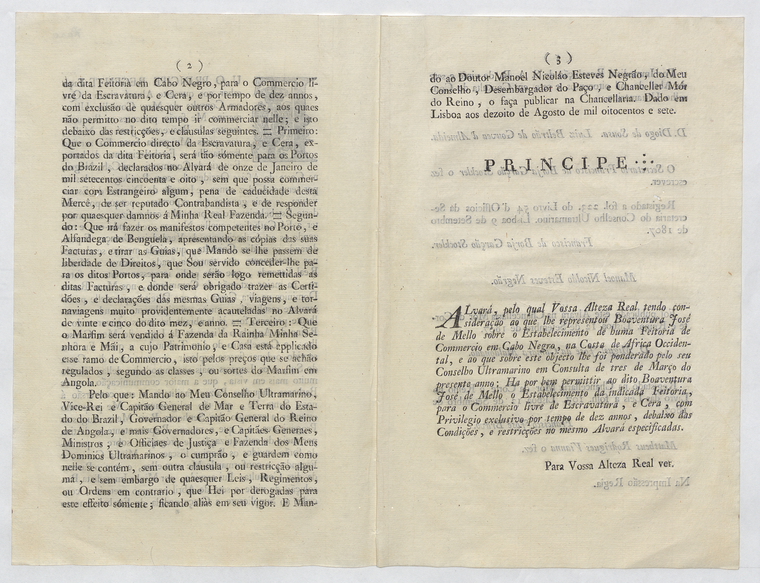 ( 2 )
da dita Feitoria em Cabo Negro, para o Commercio li-
vre da Escravatura, e Cera, e por tempo de dez annos,
com exclusão de quaesquer outros Armadores, aos quaes
não permitto no dito tempo ir commerciar nelle; e isto
debaixo das restricções, e clausulas seguintes. = Primeiro:
Que o Commercio directo da Escravatura, e Cera, ex-
portados da dita Feitoria, será tão sómente para os Portos
do Brazil, declarados no Alvará de onze de Janeiro de
mil setecentos cincoenta e oito, sem que possa commer-
ciar com Estrangeiro algum, pena de caducidade desta
Mercê, de ser reputado Contrabandista, e de responder
por quaesquer damnos á Minha Real Fazenda. = Segun-
do: Que irá fazer os manifestos competentes no Porto, e
Alfandega de Benguela, apresentando as cópias das suas
Facturas, e tirar as Guias, que Mando se lhe passem de
liberdade de Direitos, que Sou servido conceder-lhe pa-
ra os ditos Portos, para onde serão logo remettidas as
ditas Facturas, e donde será obrigado trazer as Certi-
dões, e declarações das mesmas Guias, viagens, e tor-
naviagens muito providentemente acauteladas no Alvará
de vinte e cinco do dito mez, e anno. = Terceiro: Que
o Marfim será vendido á Fazenda da Rainha Minha Se-
nhora e Mãi, a cujo Patrimonio, e Casa está applicado
esse ramo de Commercio, isto pelos preços que se achão
regulados, segundo as classes, ou sortes do Marfim em
Angola.
Pelo que: Mando ao Meu Conselho Ultramarino,
Vice-Rei e Capitão General de Mar e Terra do Esta-
do do Brazil, Governador e Capitão General do Reino
de Angola, e mais Governadores, e Capitães Generaes,
Ministros, e Officiaes de Justiça e Fazenda dos Meus
Dominios Ultramarinos, o cumprão, e guardem como
nelle se contém, sem outra clausula, ou restricção algu-
ma, e sem embargo de quaesquer Leis, Regimentos,
ou Ordens em contrario, que Hei por derogadas para
este effeito sómente; ficando aliás em seu vigor. E Man-
( 3 )
do ao Doutor Manoel Nicoláo Esteves Negrão, do Meu
Conselho, Desembargador do Paço, e Chanceller Mór
do Reino, o faça publicar na Chancellaria. Dado em
Lisboa aos dezoito de Agosto de mil oitocentos e sete.
PRINCIPE
Alvará, pelo qual Vossa Alteza Real tendo con-
sideração ao que lhe representou Boaventura José
de Mello sobre o Estabelecimento de huma Feitoria de
Commercio em Cabo Negro, na Costa de Africa Occiden-
tal, e ao que sobre este objecto lhe foi ponderado pelo seu
Conselho Ultramarino em Consulta de tres de Março do
presente anno: Ha por bem permittir ao dito Boaventura
José de Mello o Estabelecimento da indicada Feitoria,
para o Commercio livre de Escravatura, e Cera, com
Privilegio exclusivo por tempo de dez annos, debaixo das
Condições, e restricções no mesmo Alvará especificadas.
Para Vossa Alteza Real ver.